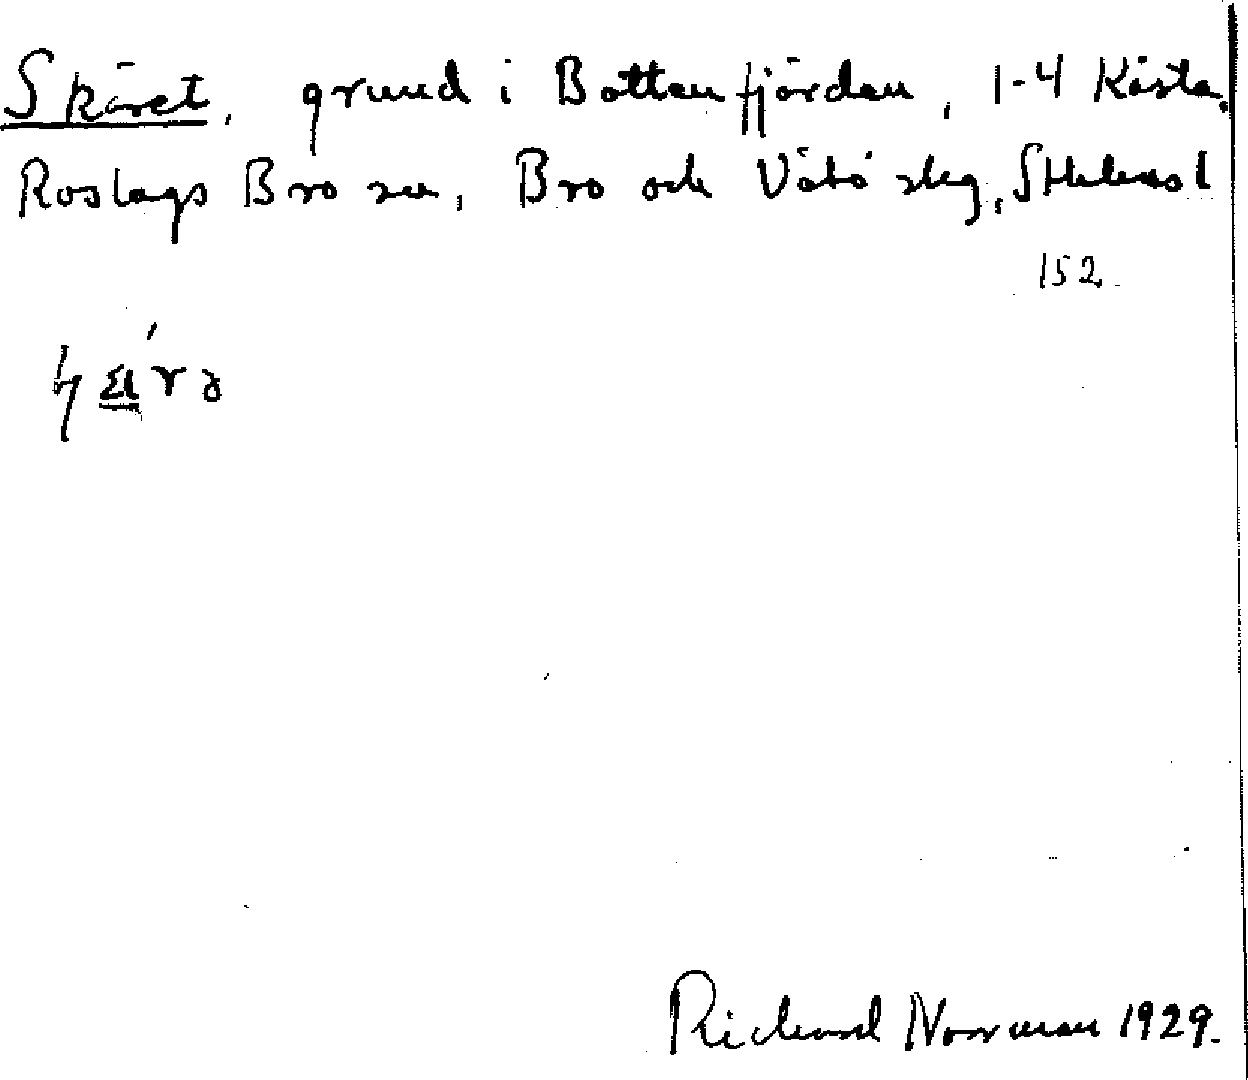 Skäret, grund i Bottenfjärden, 1-4 Kista.
Roslags Bro sn, Bro och Vätö skg, Sthlms l
152
Richard Norrman 1929.